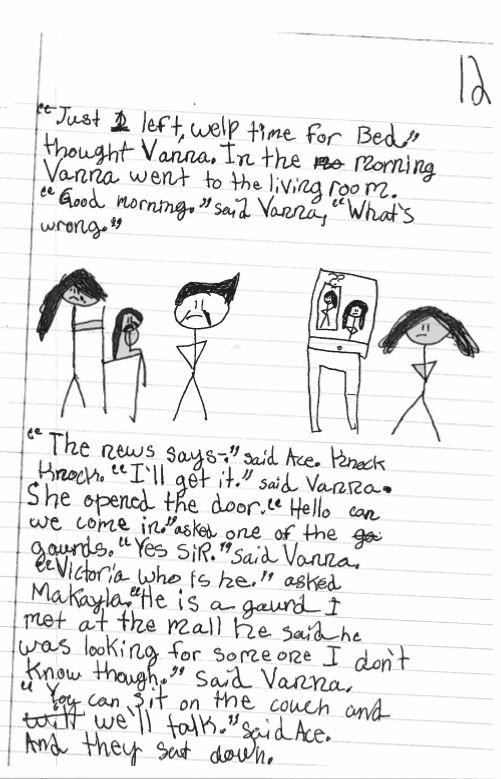 12
"Just 1 left, welp time for Bed."
thought Vanna. In the morning
Vanna went to the living room.
"Good morning." said Vanna, "What's
wrong."
"The news says-." said Ace. Knock
Knock. "I'll get it." said Vanna.
She opened the door. "Hello can
we come in." asked one of the
gaurds. "Yes SiR." said Vanna.
"Victoria who is he." asked
Makayla. "He is a gaurd I
met at the mall he said he
was looking for someone I don't
know though." said Vanna.
"You can sit on the couch and
we'll talk." said Ace.
And they sat down.